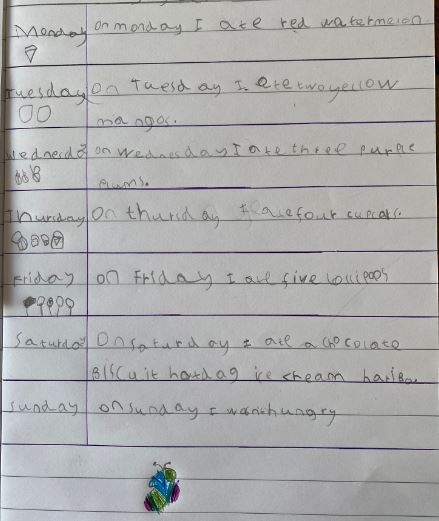 Monday on monday I ate red watermelon
Tuesday On Tuesday I ate two yellow
mangos.
on wednesday I ate three purple
Plums.
Thursday On thursday I ate four cupcats.
Friday on Friday I ate five Lollipops
Saturday On saturday I ate a chocolate
Biscuit hotdog ice cream haribo.
sunday on sunday I wasnt hungry